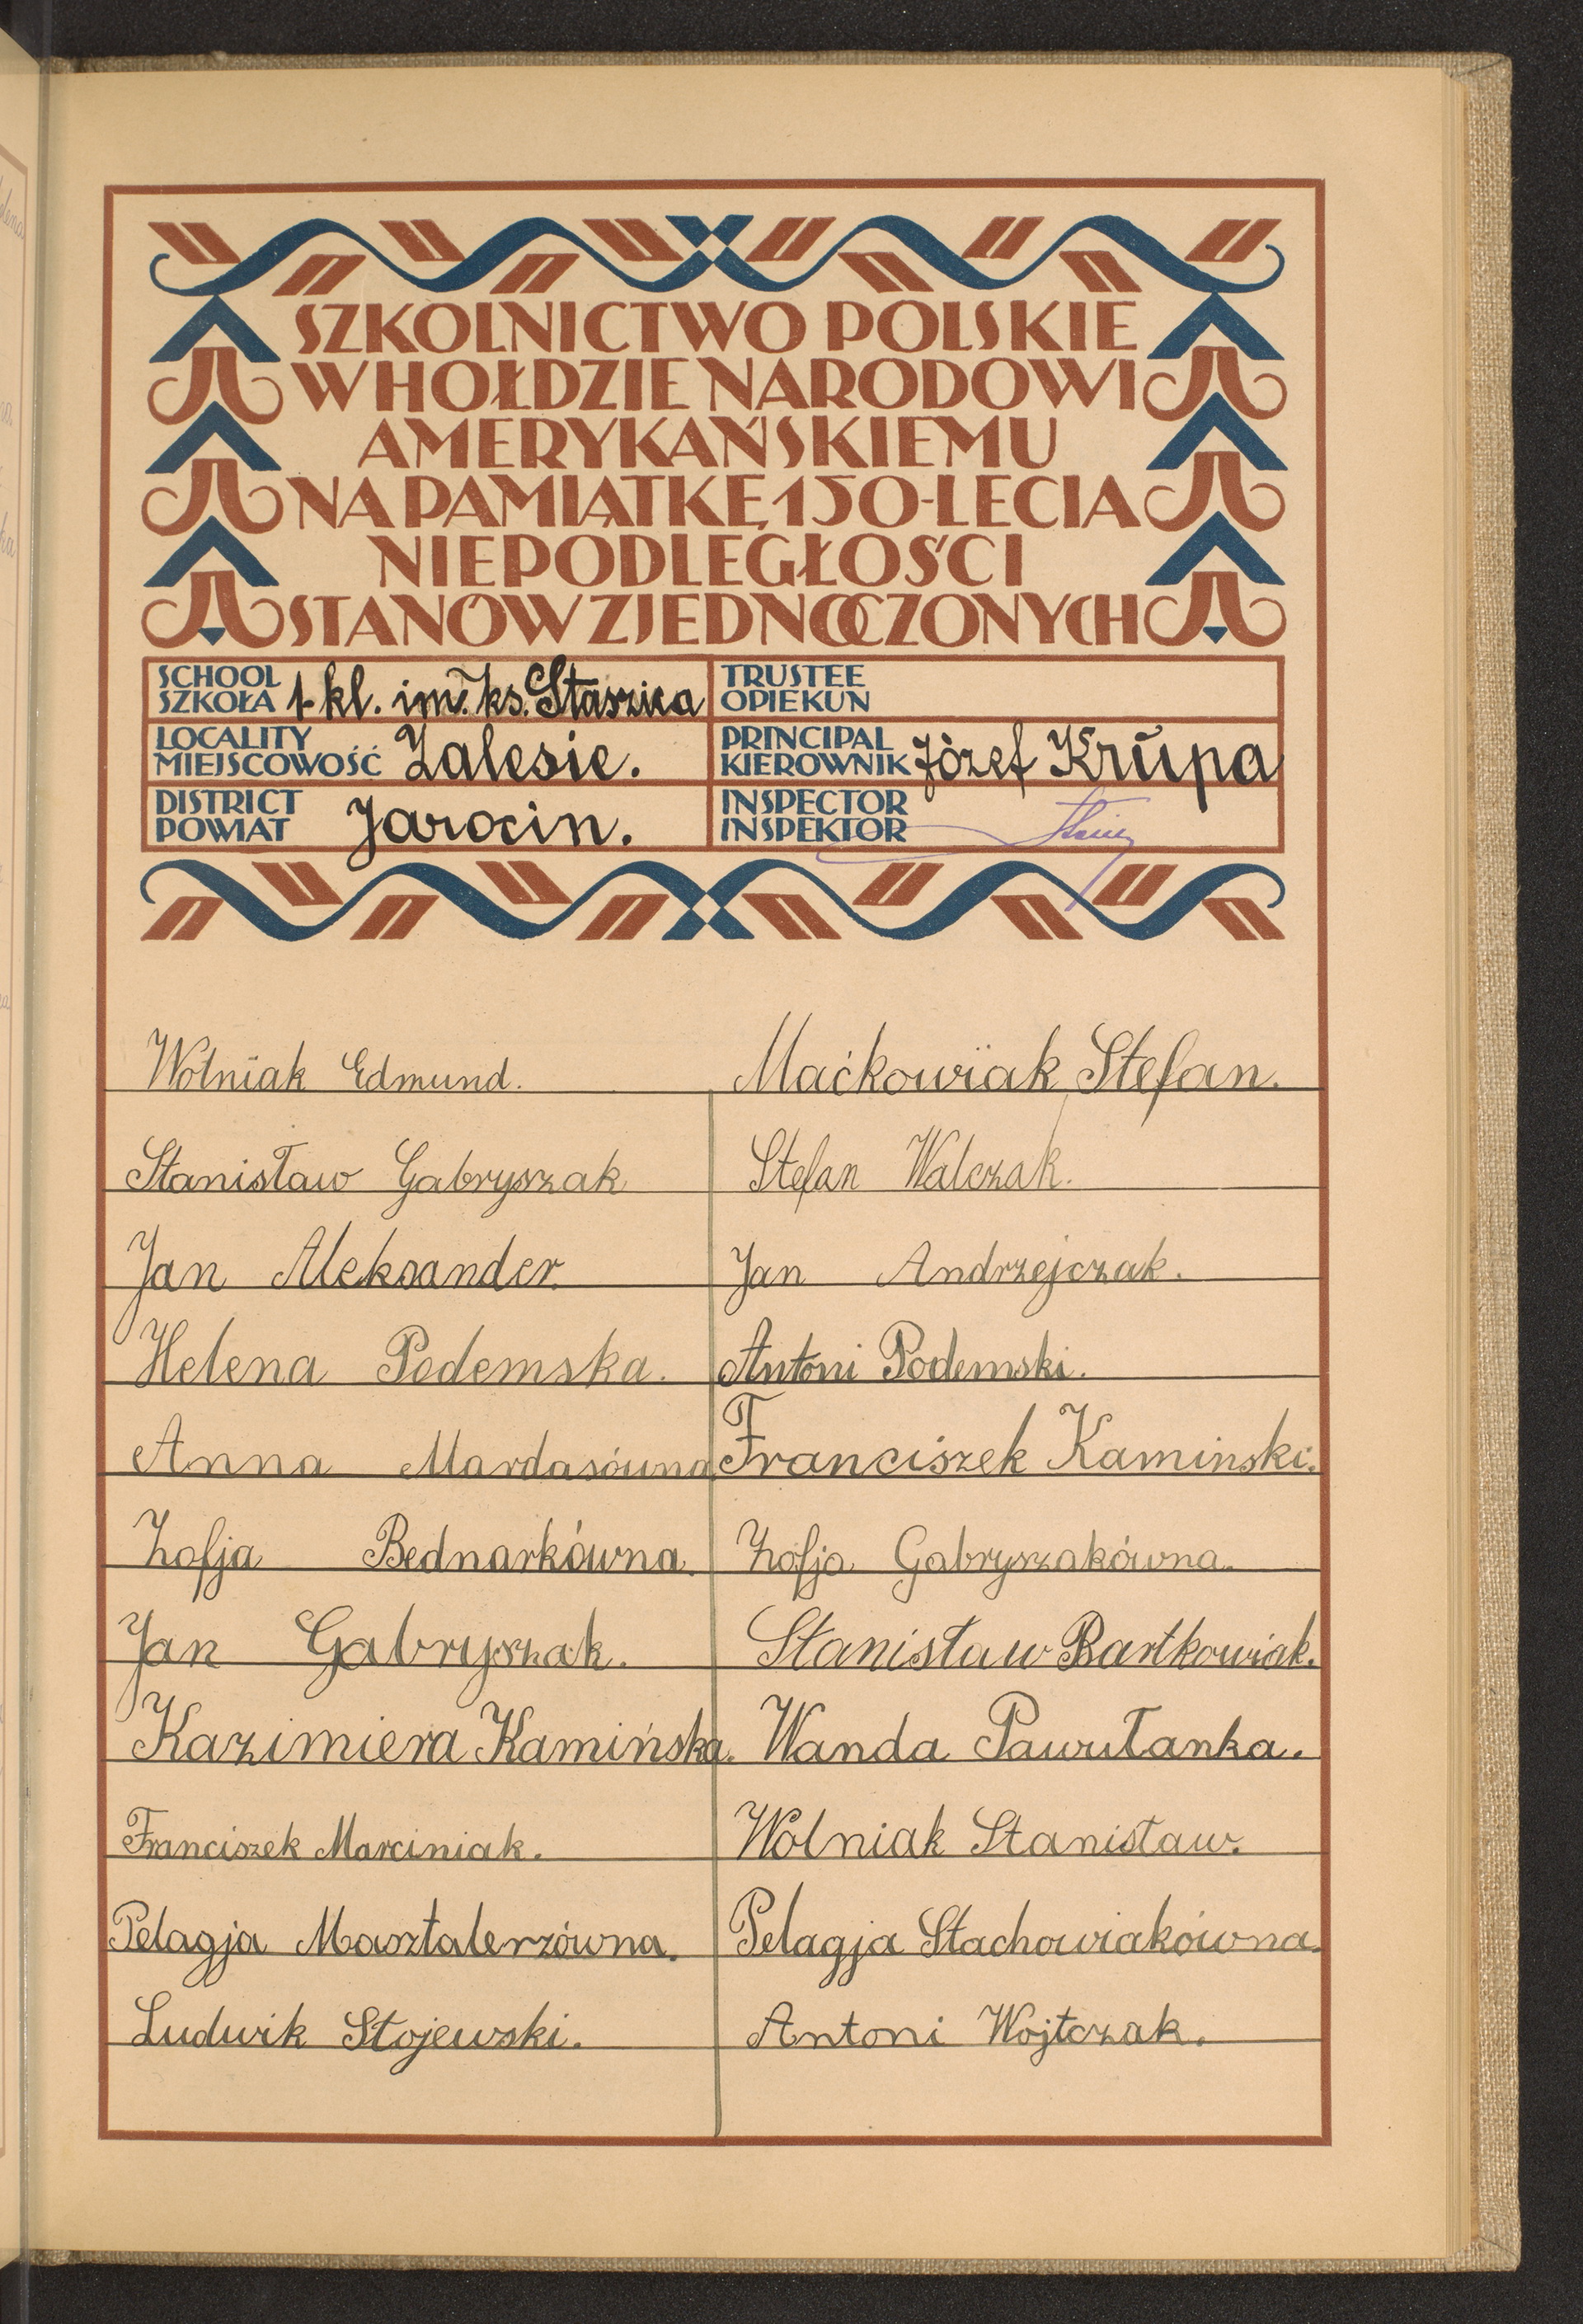 SZKOLNICTWO POLSKIE
W HOŁDZIE NARODOWI
AMERYKAŃSKIEMU
NA PAMIĄTKĘ 150-LECIA
NIEPODLEGŁOŚCI
STANÓW ZJEDNOCZONYCH
SCHOOL
SZKOŁA 1-kl. im. ks. Staszica
TRUSTEE
OPIEKUN
LOCALITY
MIEJSCOWOŚĆ Zalesie.
PRINCIPAL
KIEROWNIK Józef Krupa
DISTRICT
POWIAT Jarocin.
INSPECTOR
INSPEKTOR
Wolniak Edmund.
Maćkowiak Stefan.
Stanisław Gabryszak
Stefan Walczak.
Jan Aleksander.
Jan Andrzejczak.
Helena Podemska.
Antoni Podemski.
Anna Mardasówna.
Franciszek Kaminski.
Zofja Bednarkówna.
Zofja Gabryszakówna.
Jan Gabryszak.
Stanisław Bartkowiak.
Kazimiera Kamińska.
Wanda Pawułanka.
Franciszek Marciniak.
Wolniak Stanisław.
Pelagja Masztalerzówna.
Pelagja Stachowiakówna.
Ludwik Stojewski.
Antoni Wojtczak.